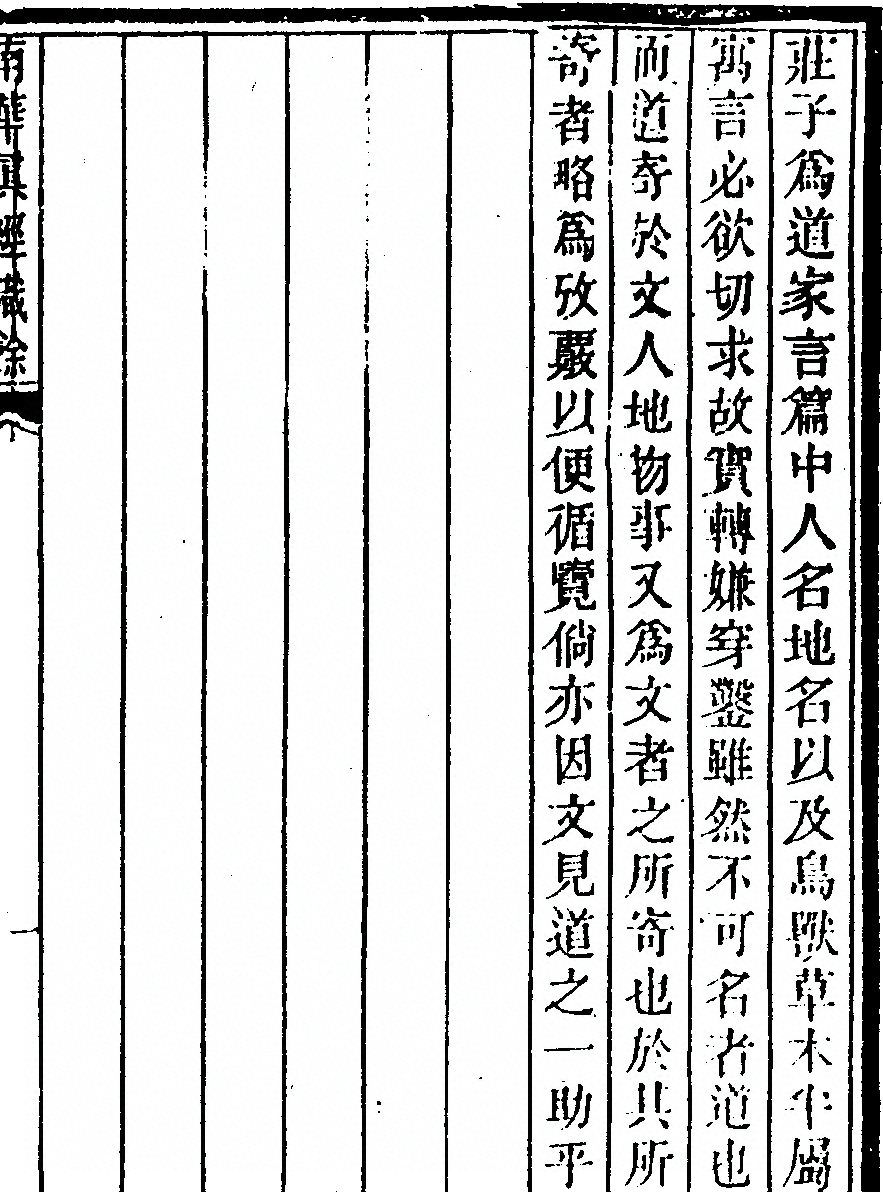 莊子爲道家言篇中人名地名以及鳥獸草木半屬
寓言必欲切求故實轉嫌穿鑿雖然不可名者道也
而道寄於文人地物事又爲文者之所寄也於其所
寄者略爲攷覈以便循覽倘亦因文見道之一助乎
南華眞經識餘